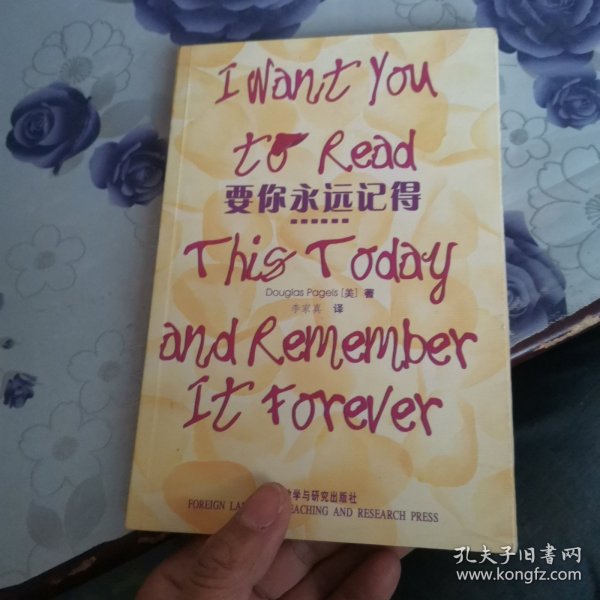 I Want You
to Read
要你永远记得
This Today
Douglas Pagels [美] 著
李家真 译
and Remember
It Forever
教学与研究出版社
FOREIGN LA EACHING AND RESEARCH PRESS
孔夫子旧书网
www.kongfz.com